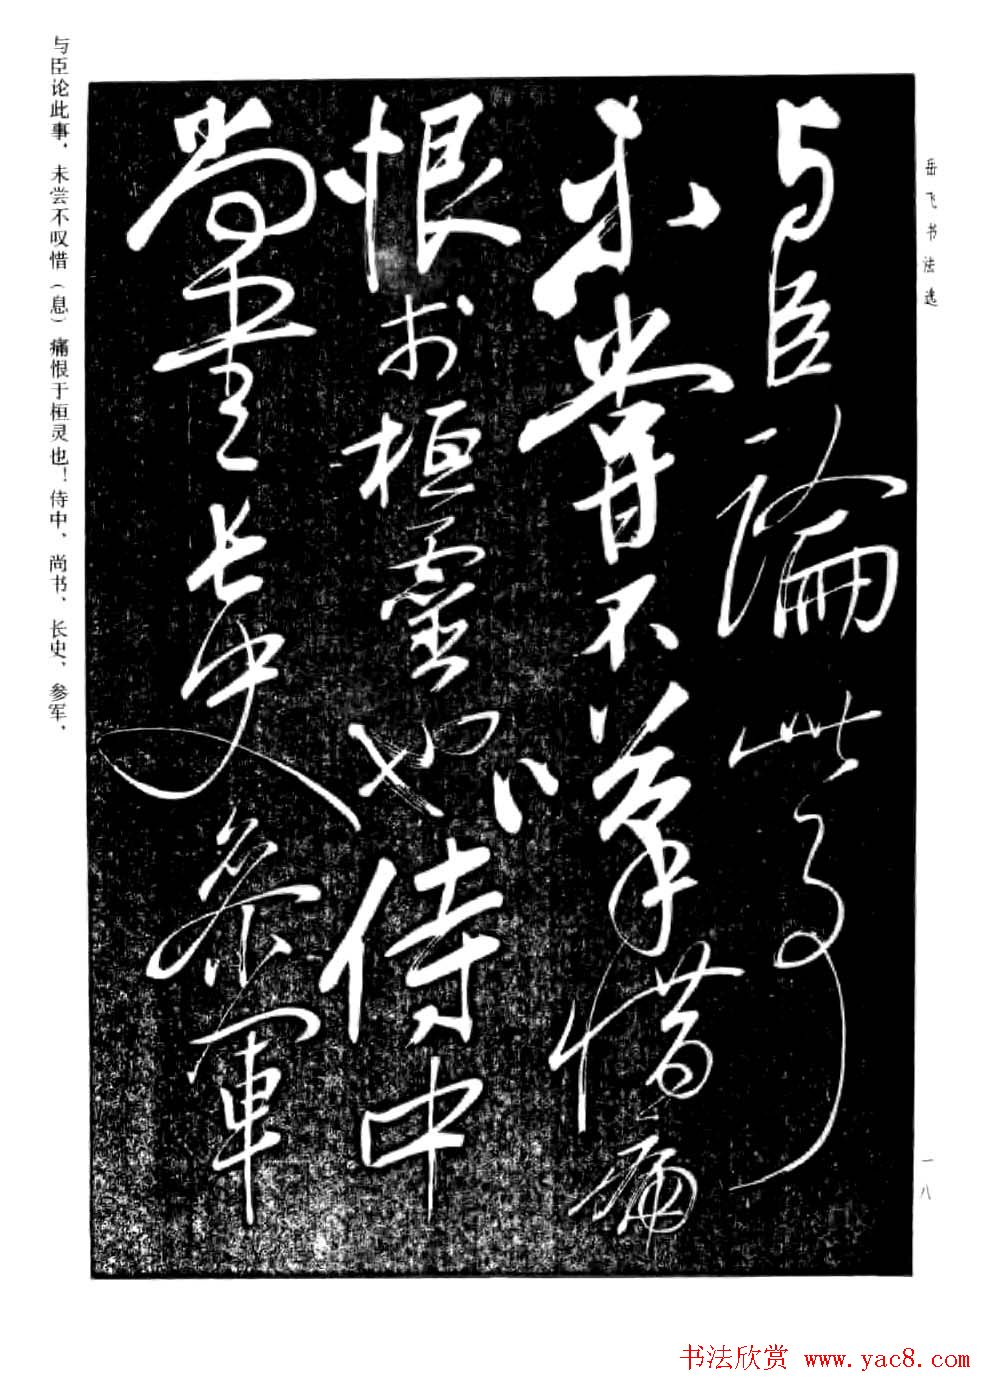 岳飞书法选
与臣論此事
未嘗不嘆惜痛
恨於桓靈也侍中
尚書長史參軍
一八
与臣论此事，未尝不叹惜（息）痛恨于桓灵也！侍中、尚书、长史、参军，
书法欣赏 www.yac8.com